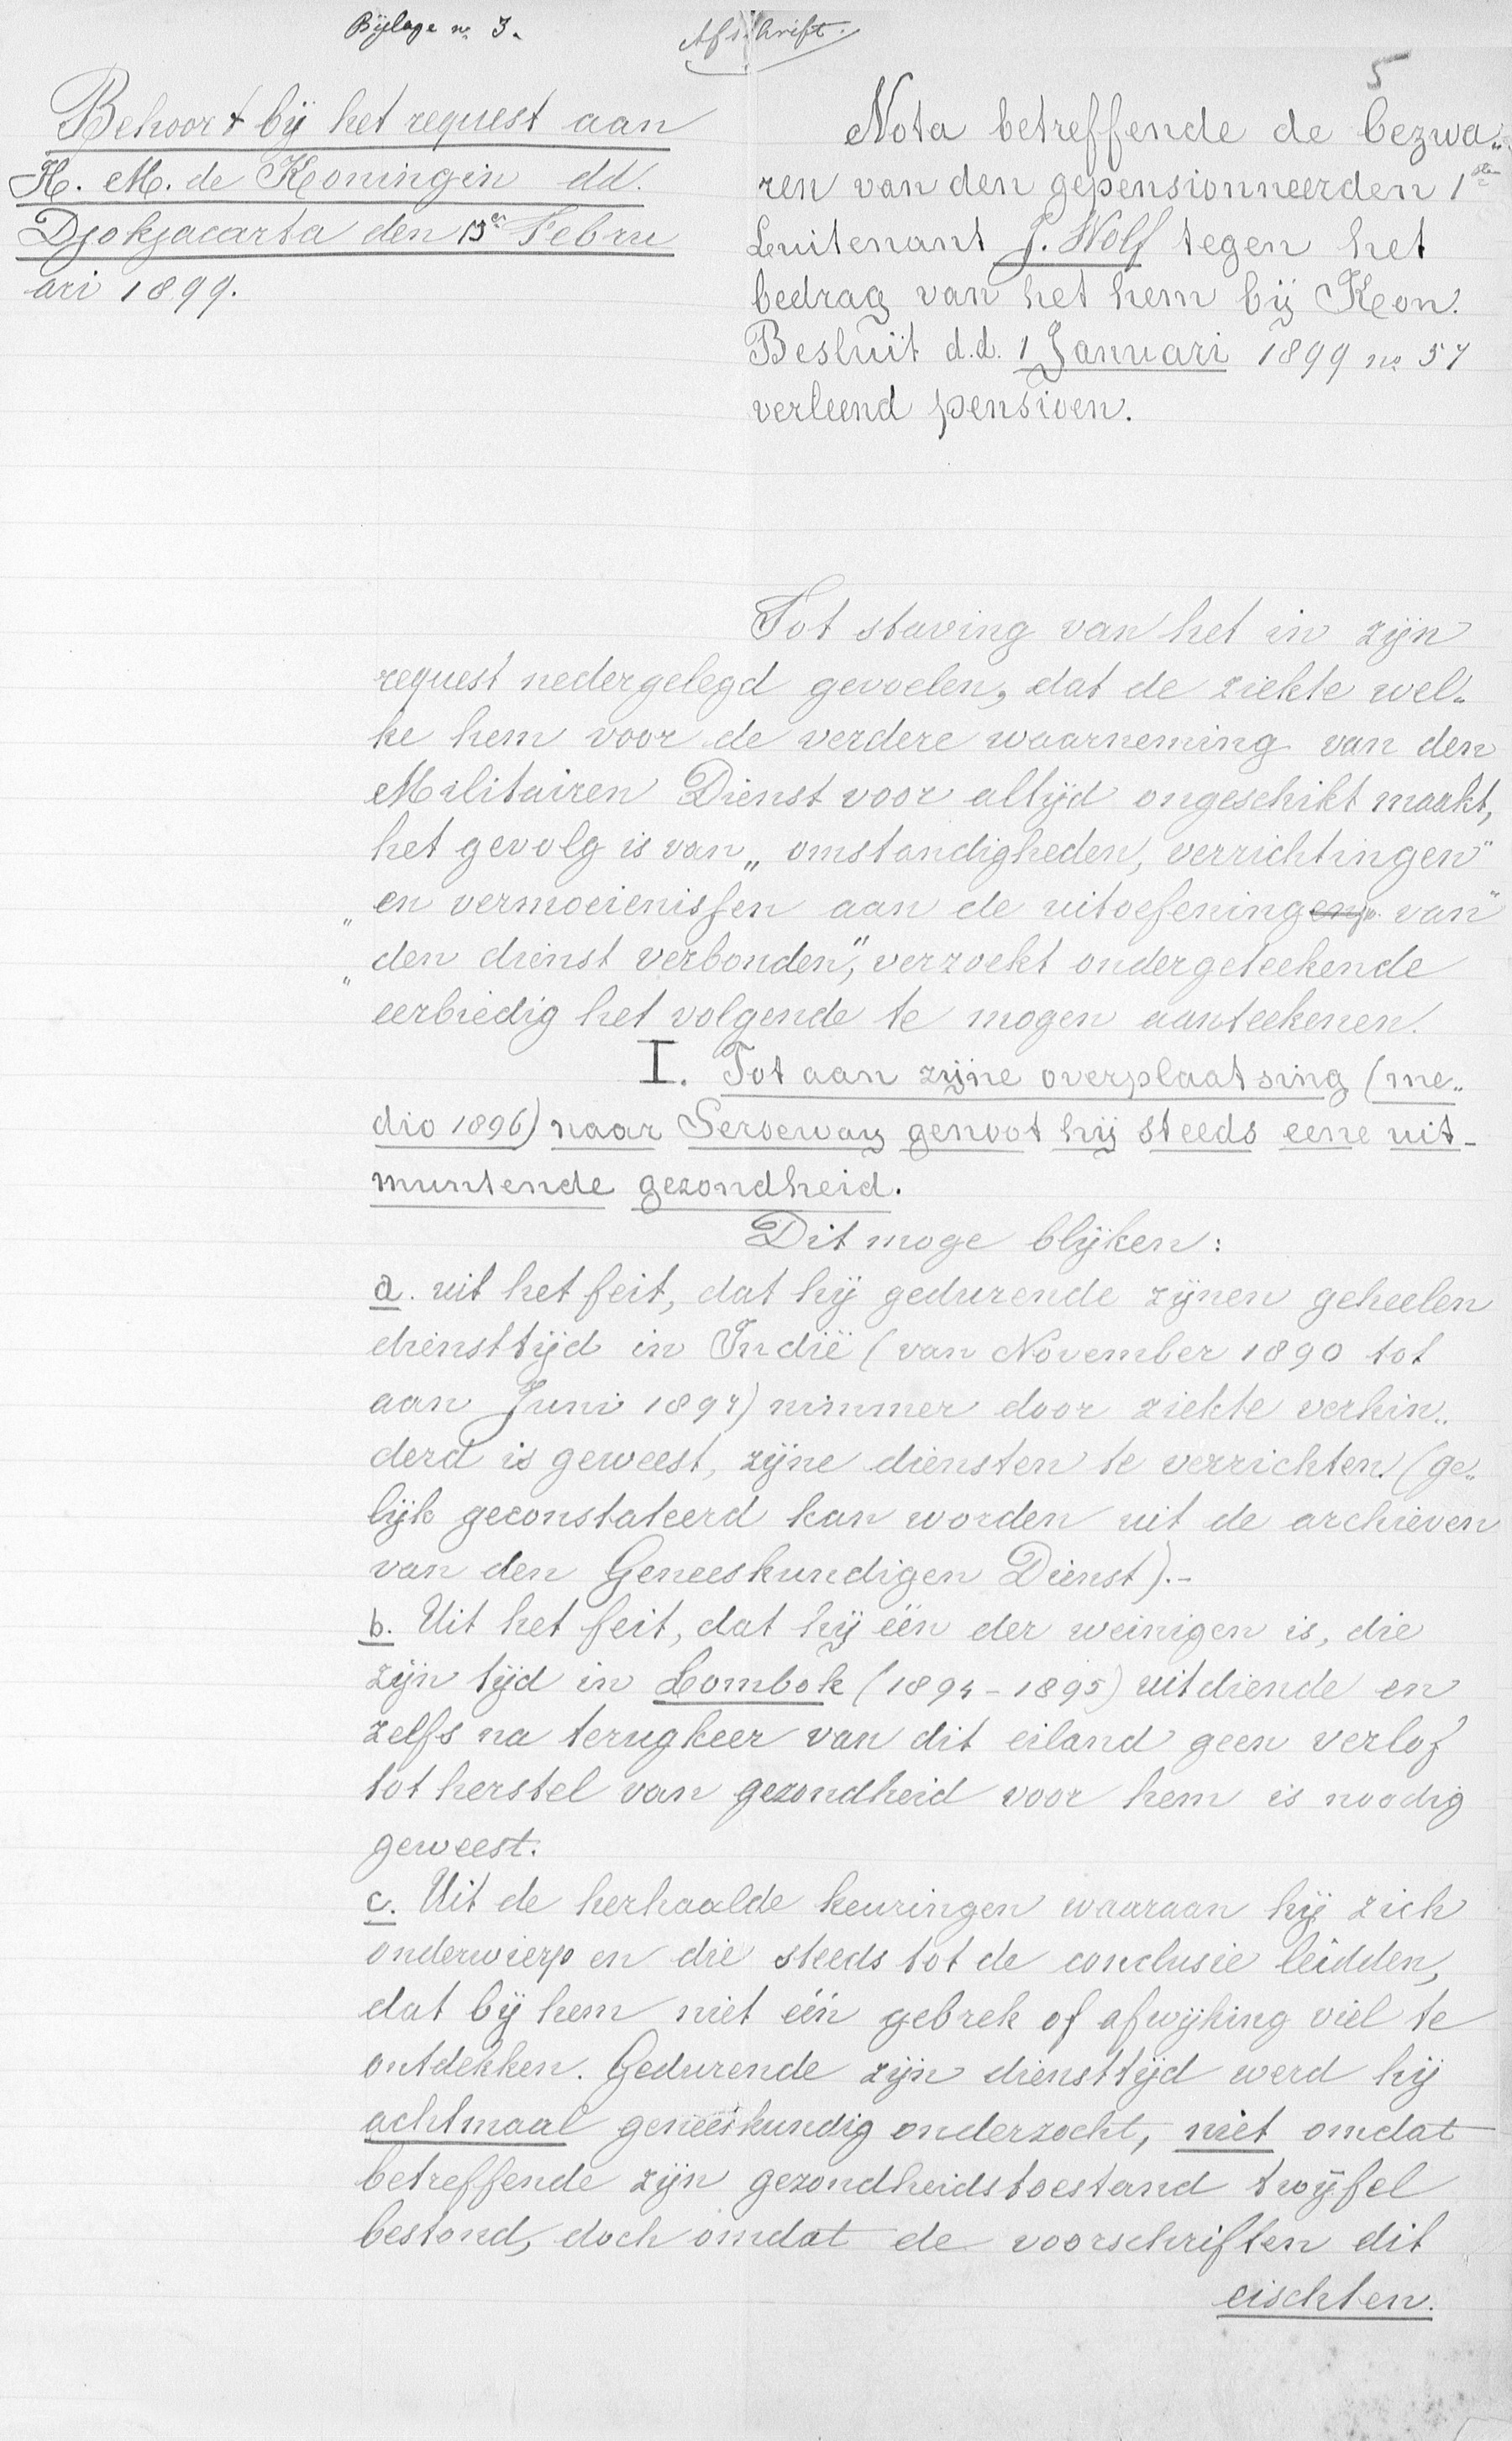 Bijlage no 3.
Afschrift.
5
Behoort bij het request aan
H. M. de Koningin dd.
Djokjacarta den 13en Febru
ari 1899.
Nota betreffende de bezwa„
ren van den gepensionneerden 1sten
Luitenant J. Wolf tegen het
bedrag van het hem bij Kon.
Besluit d.d. 1 Januari 1899 no 57
verleend pensioen.
Tot staving van het in zijn
request nedergelegd gevoelen, dat de ziekte wel„
ke hem voor de verdere waarneming van den
Militairen Dienst voor altijd ongeschikt maakt,
het gevolg is van „omstandigheden, verrichtingen"
„en vermoeienissen aan de uitoefening van"
„den dienst verbonden", verzoekt ondergeteekende
eerbiedig het volgende te mogen aanteekenen.
I. Tot aan zijne overplaatsing (me„
dio 1896) naar Seroeway genoot hij steeds eene uit-
muntende gezondheid.
Dit moge blijken:
a. uit het feit, dat hij gedurende zijnen geheelen
diensttijd in Indië (van November 1890 tot
aan Juni 1897) nimmer door ziekte verhin„
derd is geweest, zijne diensten te verrichten. (ge„
lijk geconstateerd kan worden uit de archieven
van den Geneeskundigen Dienst).-
b. Uit het feit, dat hij één der weinigen is, die
zijn tijd in Lombok (1894-1895) uitdiende en
zelfs na terugkeer van dit eiland geen verlof
tot herstel van gezondheid voor hem is noodig
geweest.
c. Uit de herhaalde keuringen waaraan hij zich
onderwierp en die steeds tot de conclusie leidden,
dat bij hem niet één gebrek of afwijking viel te
ontdekken. Gedurende zijn diensttijd werd hij
achtmaal geneeskundig onderzocht, niet omdat
betreffende zijn gezondheidstoestand twijfel
bestond, doch omdat de voorschriften dit
eischten.